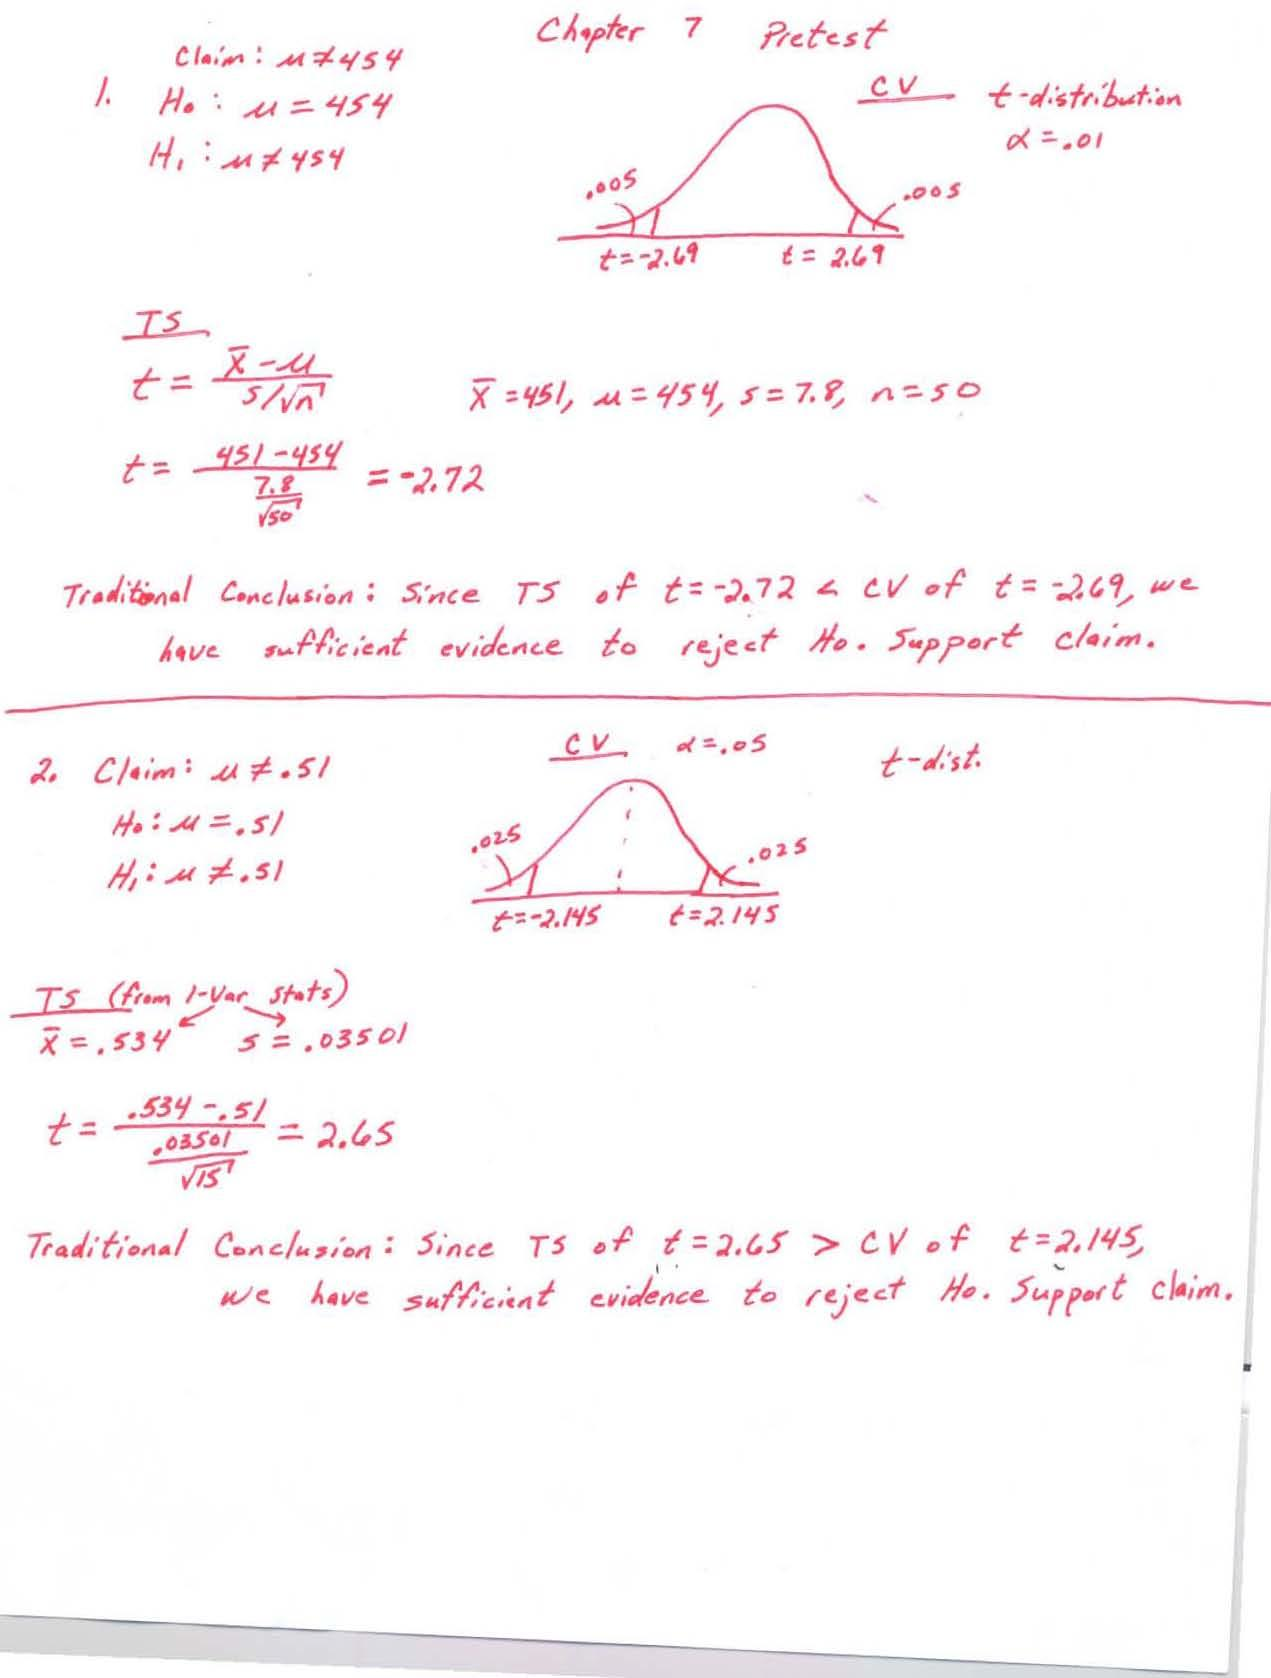 Chapter 7 Pretest
Claim: μ ≠ 454
1. Ho: μ = 454
H₁: μ ≠ 454
CV t-distribution
α = .01
.005 .005
t = -2.69 t = 2.69
TS
t = (x̄ - μ) / (s/√n) x̄ = 451, μ = 454, s = 7.8, n = 50
t = (451 - 454) / (7.8/√50) = -2.72
Traditional Conclusion: Since TS of t = -2.72 < CV of t = -2.69, we
have sufficient evidence to reject Ho. Support claim.
2. Claim: μ ≠ .51
Ho: μ = .51
H₁: μ ≠ .51
CV α = .05 t-dist.
.025 .025
t = -2.145 t = 2.145
TS (from 1-Var Stats)
x̄ = .534 s = .03501
t = (.534 - .51) / (.03501/√15) = 2.65
Traditional Conclusion: Since TS of t = 2.65 > CV of t = 2.145,
we have sufficient evidence to reject Ho. Support claim.